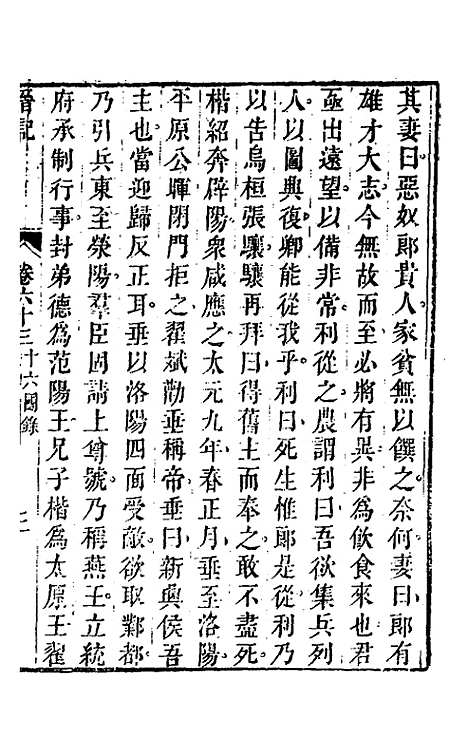 其妻曰惡奴郞貴人家貧無以饌之奈何妻曰郞有
雄才大志今無故而至必將有異非爲飮食來也君
亟出遠望以備非常利從之農謂利曰吾欲集兵列
人以圖興復卿能從我乎利曰死生惟郞是從利乃
以告烏桓張驤驤再拜曰得舊主而奉之敢不盡死
楷紹奔辟陽衆咸應之太元九年春正月垂至洛陽
平原公暉閉門拒之翟斌勸垂稱帝垂曰新興侯吾
主也當迎歸反正耳垂以洛陽四面受敵欲取鄴都
乃引兵東至滎陽羣臣固請上尊號乃稱燕王立統
府承制行事封弟德爲范陽王兄子楷爲太原王翟
晉記
卷六十三
十六國錄